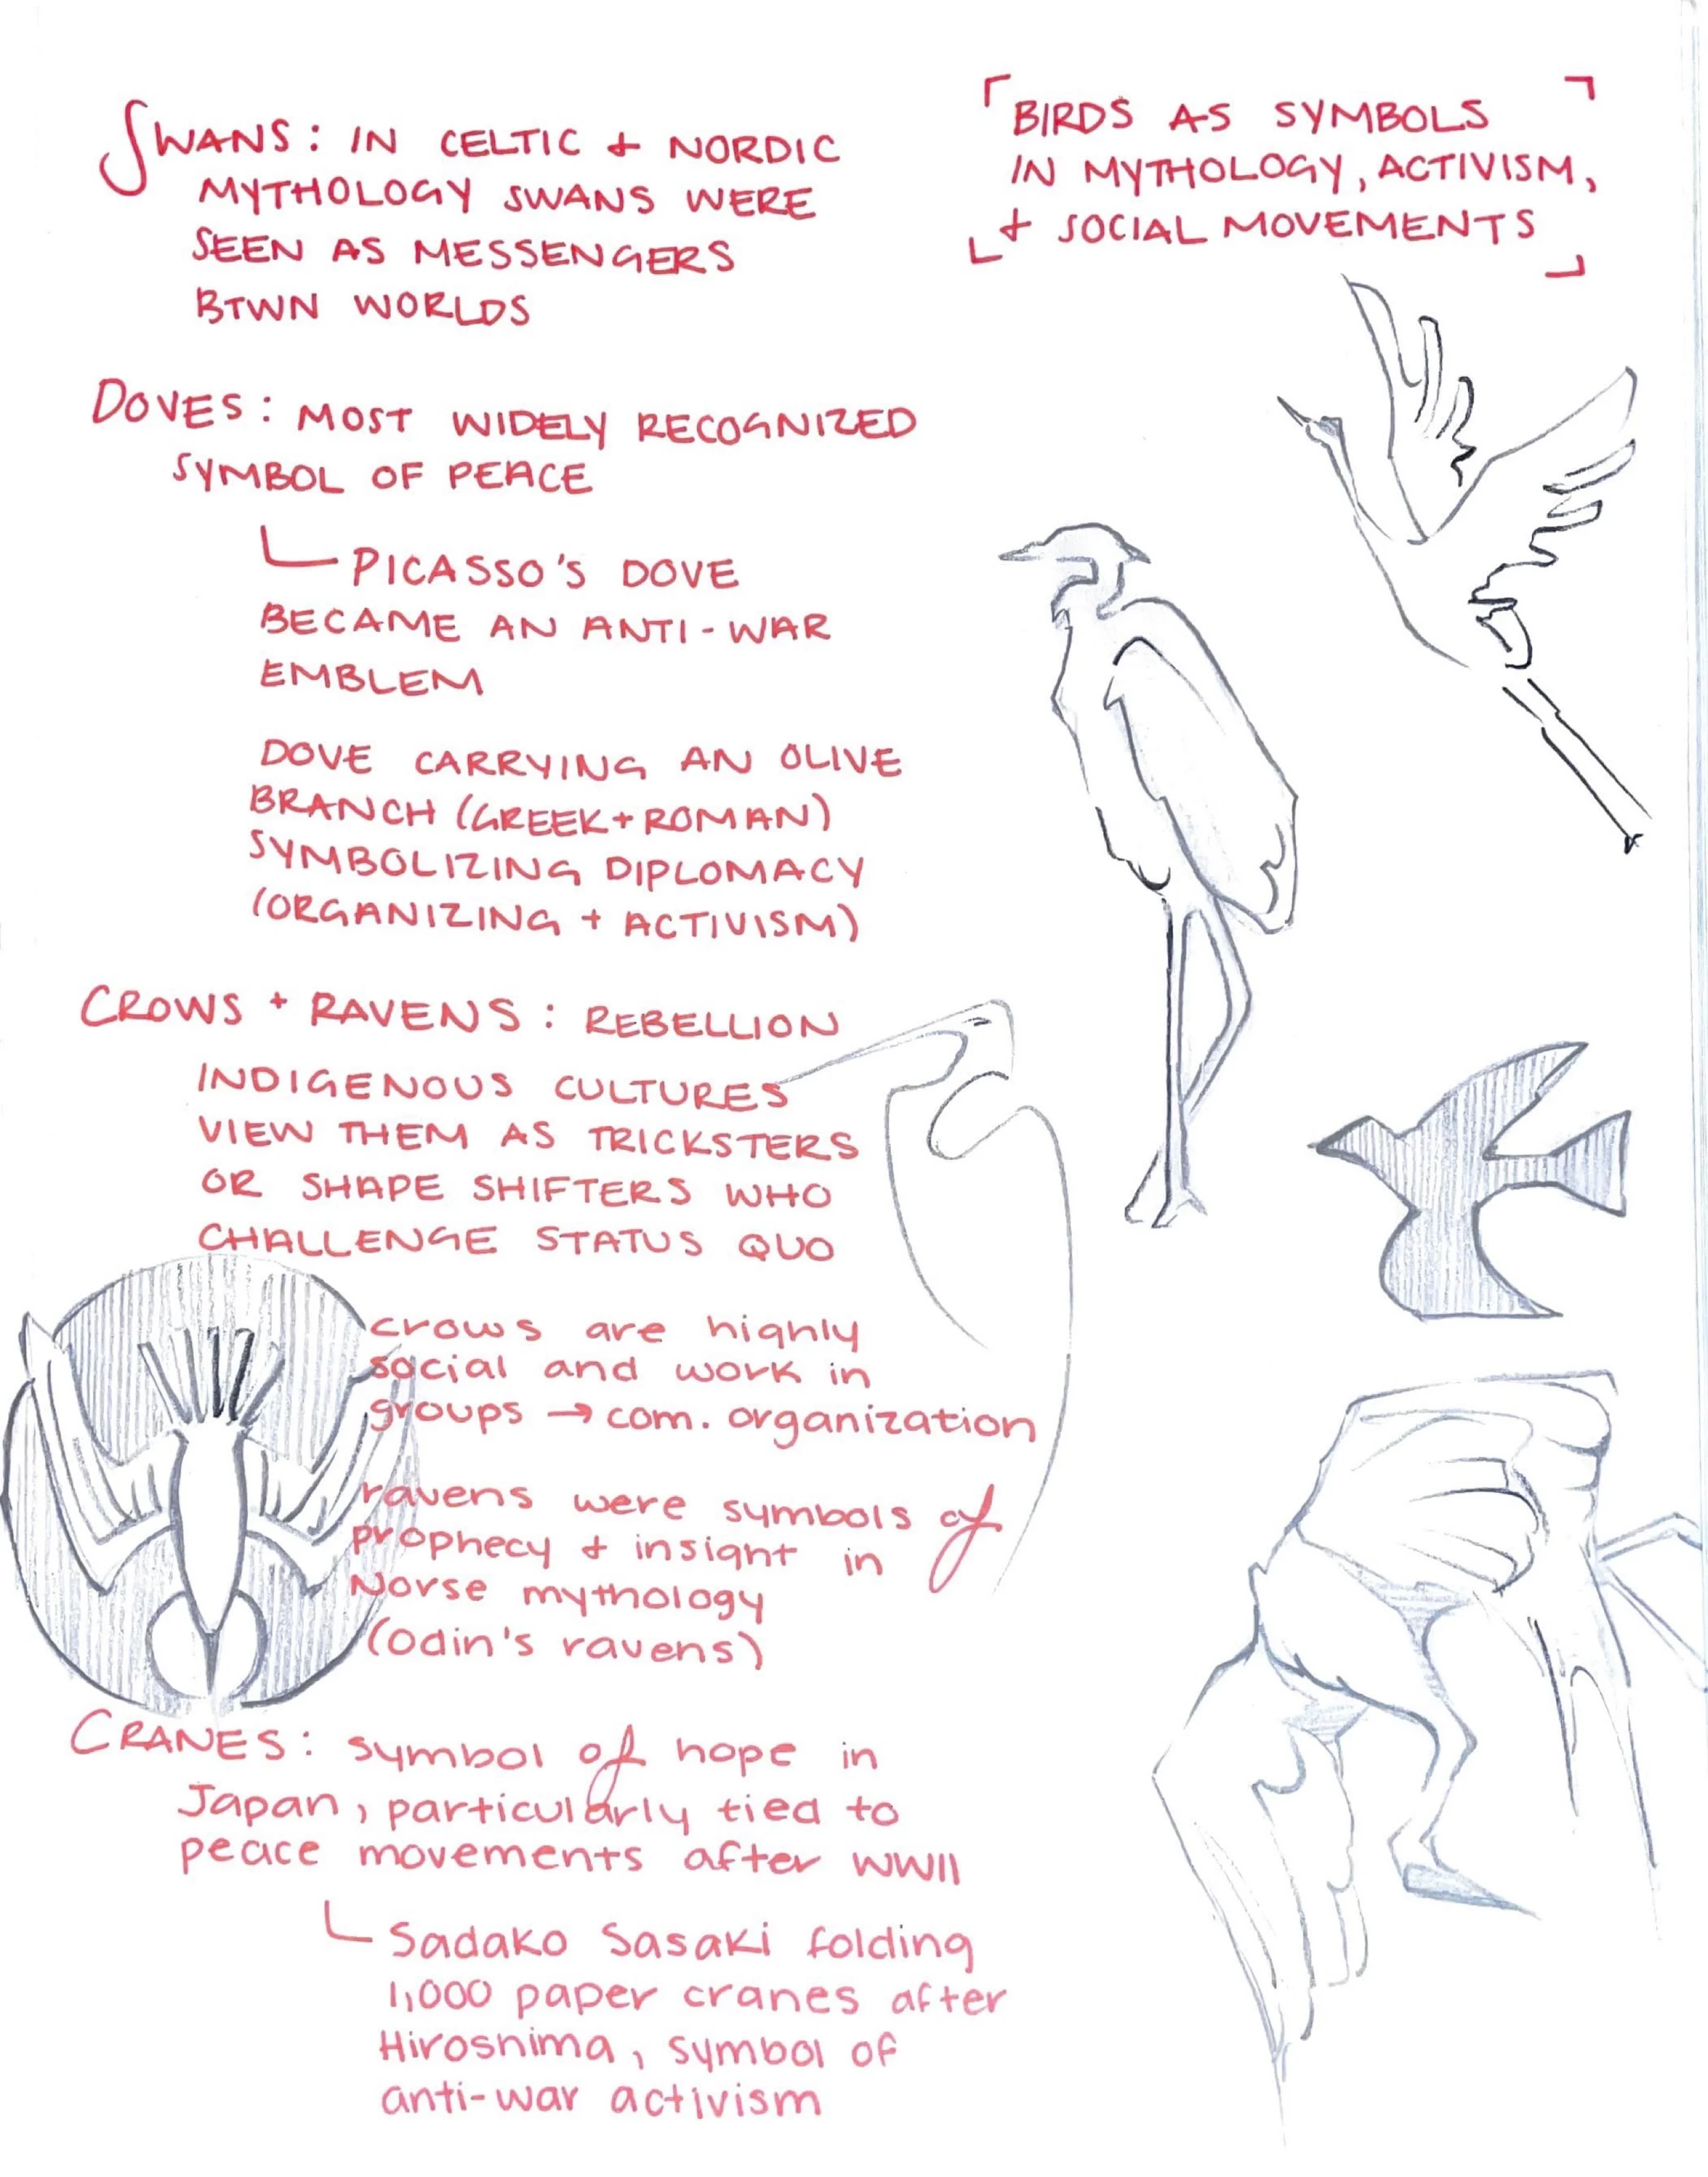 SWANS: IN CELTIC + NORDIC
MYTHOLOGY SWANS WERE
SEEN AS MESSENGERS
BTWN WORLDS
BIRDS AS SYMBOLS
IN MYTHOLOGY, ACTIVISM,
+ SOCIAL MOVEMENTS
DOVES: MOST WIDELY RECOGNIZED
SYMBOL OF PEACE
PICASSO'S DOVE
BECAME AN ANTI-WAR
EMBLEM
DOVE CARRYING AN OLIVE
BRANCH (GREEK + ROMAN)
SYMBOLIZING DIPLOMACY
(ORGANIZING + ACTIVISM)
CROWS + RAVENS: REBELLION
INDIGENOUS CULTURES
VIEW THEM AS TRICKSTERS
OR SHAPE SHIFTERS WHO
CHALLENGE STATUS QUO
crows are highly
social and work in
groups → com. organization
ravens were symbols of
prophecy + insight in
Norse mythology
(Odin's ravens)
CRANES: symbol of hope in
Japan, particularly tied to
peace movements after WWII
Sadako Sasaki folding
1,000 paper cranes after
Hiroshima, symbol of
anti-war activism